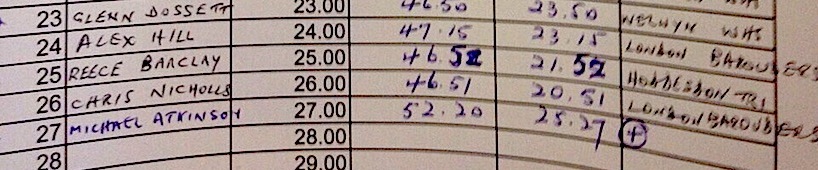 23 GLENN DOSSETT 23.00 46.50 23.50 WELWYN WHS
24 ALEX HILL 24.00 47.15 23.15 LONDON BAROUDERS
25 REECE BARCLAY 25.00 46.52 21.52 HODDESDON TRI
26 CHRIS NICHOLLS 26.00 46.51 20.51 LONDON BAROUDERS
27 MICHAEL ATKINSON 27.00 52.20 25.27 +
28 28.00
29.00